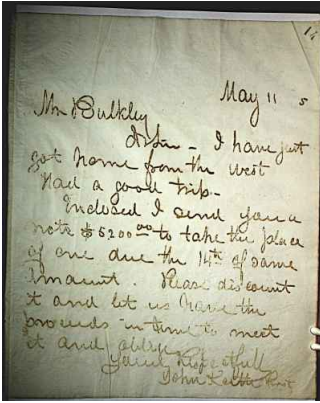 14
May 11 5
Mr Bulkley
D Sir - I have just
got home from the west
Had a good trip -
Enclosed I send you a
note $5200.00 to take the place
of one due the 14th of same
Amount. Please discount
it and let us have the
proceeds in time to meet
it and oblige
Yours Respectfull
John